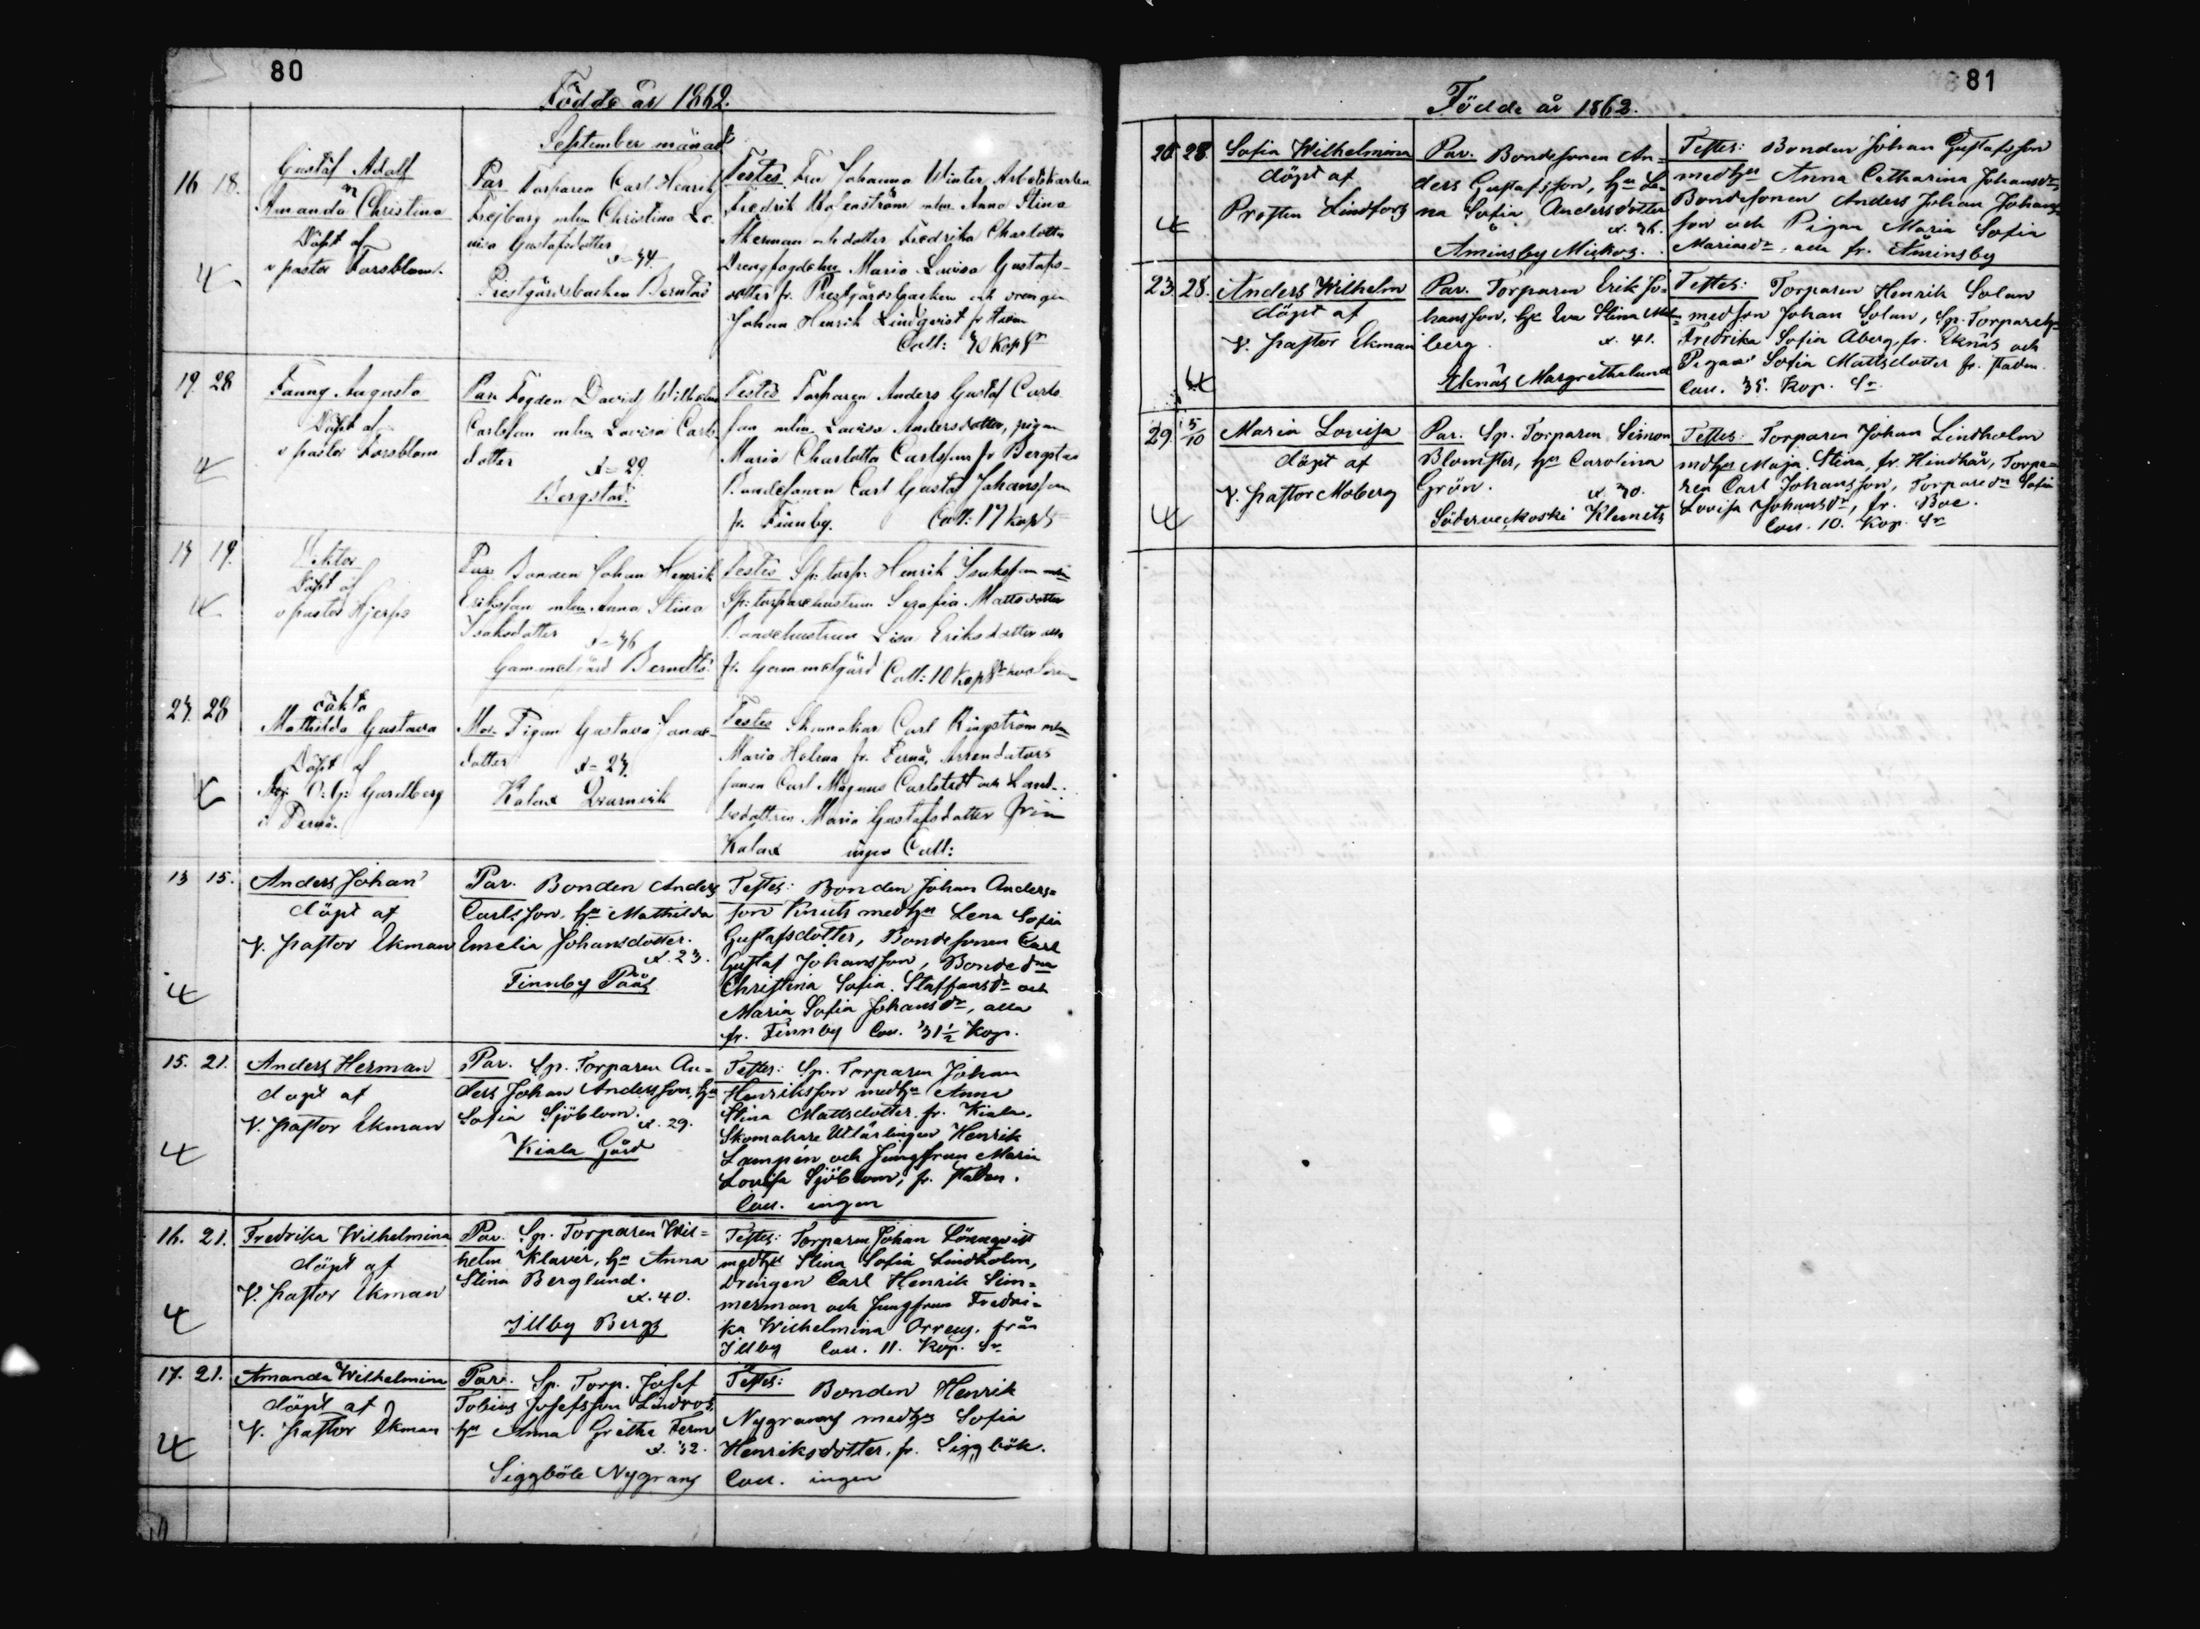 80
Födde år 1862.
September månad
16 18.
Gustaf Adolf
Amanda Christina
Döpt af
v pastor Forsblom.
Par Torparen Carl Henrik
Frejborg mhu Christina Lo-
visa Gustafsdotter
Prestgårdsbacken
Testes Fru Johanna Winter, Arbetskarlen
Fredrik mhu Anna Stina
Åkerman och dotter Fredrika Charlotta
Maria Lovisa Gustafs-
dotter fr. Prestgårdsbacken och drengen
Johan Henrik Lindqvist fr
Coll: 70 kop Sr
19 28
Fanny Augusta
Döpt af
v pastor Forsblom
Par Fogden David Wilhelm
Carlsson mhu Lovisa Carls-
dotter
æ 29
Bergstad.
Testes Torparen Anders Gustaf Carls
son mhu Lovisa Andersdotter, pigan
Maria Charlotta Carlsson fr Bergstad
Bondesonen Carl Gustaf Johansson
fr. Finnby. Coll: 17 kop S
19.
Viktor
Döpt af
v pastor Hjerpe
Par Bonden Johan Henrik
Eriksson mhu Anna Stina
Isaksdotter
æ 36
Gammelgård Berndts
Testes Sp: torp: Henrik Isaksson mhu
Sp: torparehustrun Serafia Mattsdotter
Bondehustrun Lisa Eriksdotter alla
fr. Gammelgård Coll: 10 Kop Sr
27. 28
oäkta
Mathilda Gustava
Döpt af
O: G: Gardberg
i Pernå.
Mor Pigan Gustava Jonas-
dotter
æ 27.
Kalax Qvarnvik
Testes Skomakar Carl Ringström mhu
Maria Helena fr. Pernå, Arrendators
sonen Carl Magnus Carlstedt och Land-
bodottren Maria Gustafsdotter från
Kalax ingen Coll:
13 15.
Anders Johan
döpt af
V. pastor Ekman
Par. Bonden Anders
Carlsson, hu Mathilda
Emelia Johansdotter.
æ. 23.
Finnby Påås
Testes: Bonden Johan Anders=
son Knuts med hu Lena Sofia
Gustafsdotter, Bondesonen Carl
Gustaf Johansson, Bonded:na
Christina Sofia Staffansdr och
Maria Sofia Johansdr, alla
fr. Finnby Coll. 31 1/2 Kop.
15. 21.
Anders Herman
döpt af
V. pastor Ekman
Par. Sp. Torparen An=
ders Johan Andersson, hu
Sofia Sjöblom.
æ. 29.
Kiala Gård
Testes: Sp. Torparen Johan
Henriksson med hu Anna
Stina Mattsdotter fr. Kiala.
Skomakare Utlärlingen Henrik
Lampén och Jungfrun Maria
Lovisa Sjöblom, fr. staden.
Coll. ingen
16. 21.
Fredrika Wilhelmina
döpt af
V. pastor Ekman
Par. Sp. Torparen Wil=
helm Klavér, hu Anna
Stina Berglund.
æ. 40.
Illby Bergs
Testes: Torparen Johan Lönnqvist
med hu Stina Sofia Lindholm,
Drengen Carl Henrik Sim=
merman och Jungfrun Fredri=
ka Wilhelmina från
Illby Coll. 11. Kop. Sr
17. 21.
Amanda Wilhelmina
döpt af
V. pastor Ekman
Par. Sp. Torp. Josef
Tobias Josefsson Lindroos
hu Anna Gretha Ferm
æ. 32.
Siggböle Nygrans
Testes: Bonden Henrik
Nygrans med hu Sofia
Henriksdotter, fr. Siggböle.
Coll. ingen
81
Födde år 1862.
28
Sofia Wilhelmina
döpt af
Prosten Lindfors
Par. Bondesonen An=
ders Gustafsson, hu Le=
na Sofia Andersdotter
æ. 36.
Åminsby Mickos.
Testes: Bonden Johan Gustafsson
med hu Anna Catharina Johansdr,
Bondesonen Anders Johan Johans
son och Pigan Maria Sofia
alla fr. Åminsby
23. 28.
Anders Wilhelm
döpt af
V. pastor Ekman
Par. Torparen Erik Jo=
hansson, hu Eva Stina Malm=
berg. æ. 41.
Eknäs Margrethelund
Testes: Torparen Henrik Solan
med son Johan Solan, Sp. Torpareh:
Fredrika Sofia Åberg, fr. Eknäs och
Pigan Sofia Mattsdotter fr. staden.
Coll. 35. Kop. Sr.
29. 5/10
Maria Lovisa
döpt af
V. pastor Moberg
Par. Sp. Torparen Simon
Blomster, hu Carolina
Grön. æ. 30.
Söderveckoski Klemets
Testes: Torparen Johan Lindholm
med hu Maja Stina, fr. Hindhår, Torpa=
ren Carl Johansson, Torparedr Sofia
Lovisa Johansdr, fr. Boe.
Coll. 10. Kop. Sr